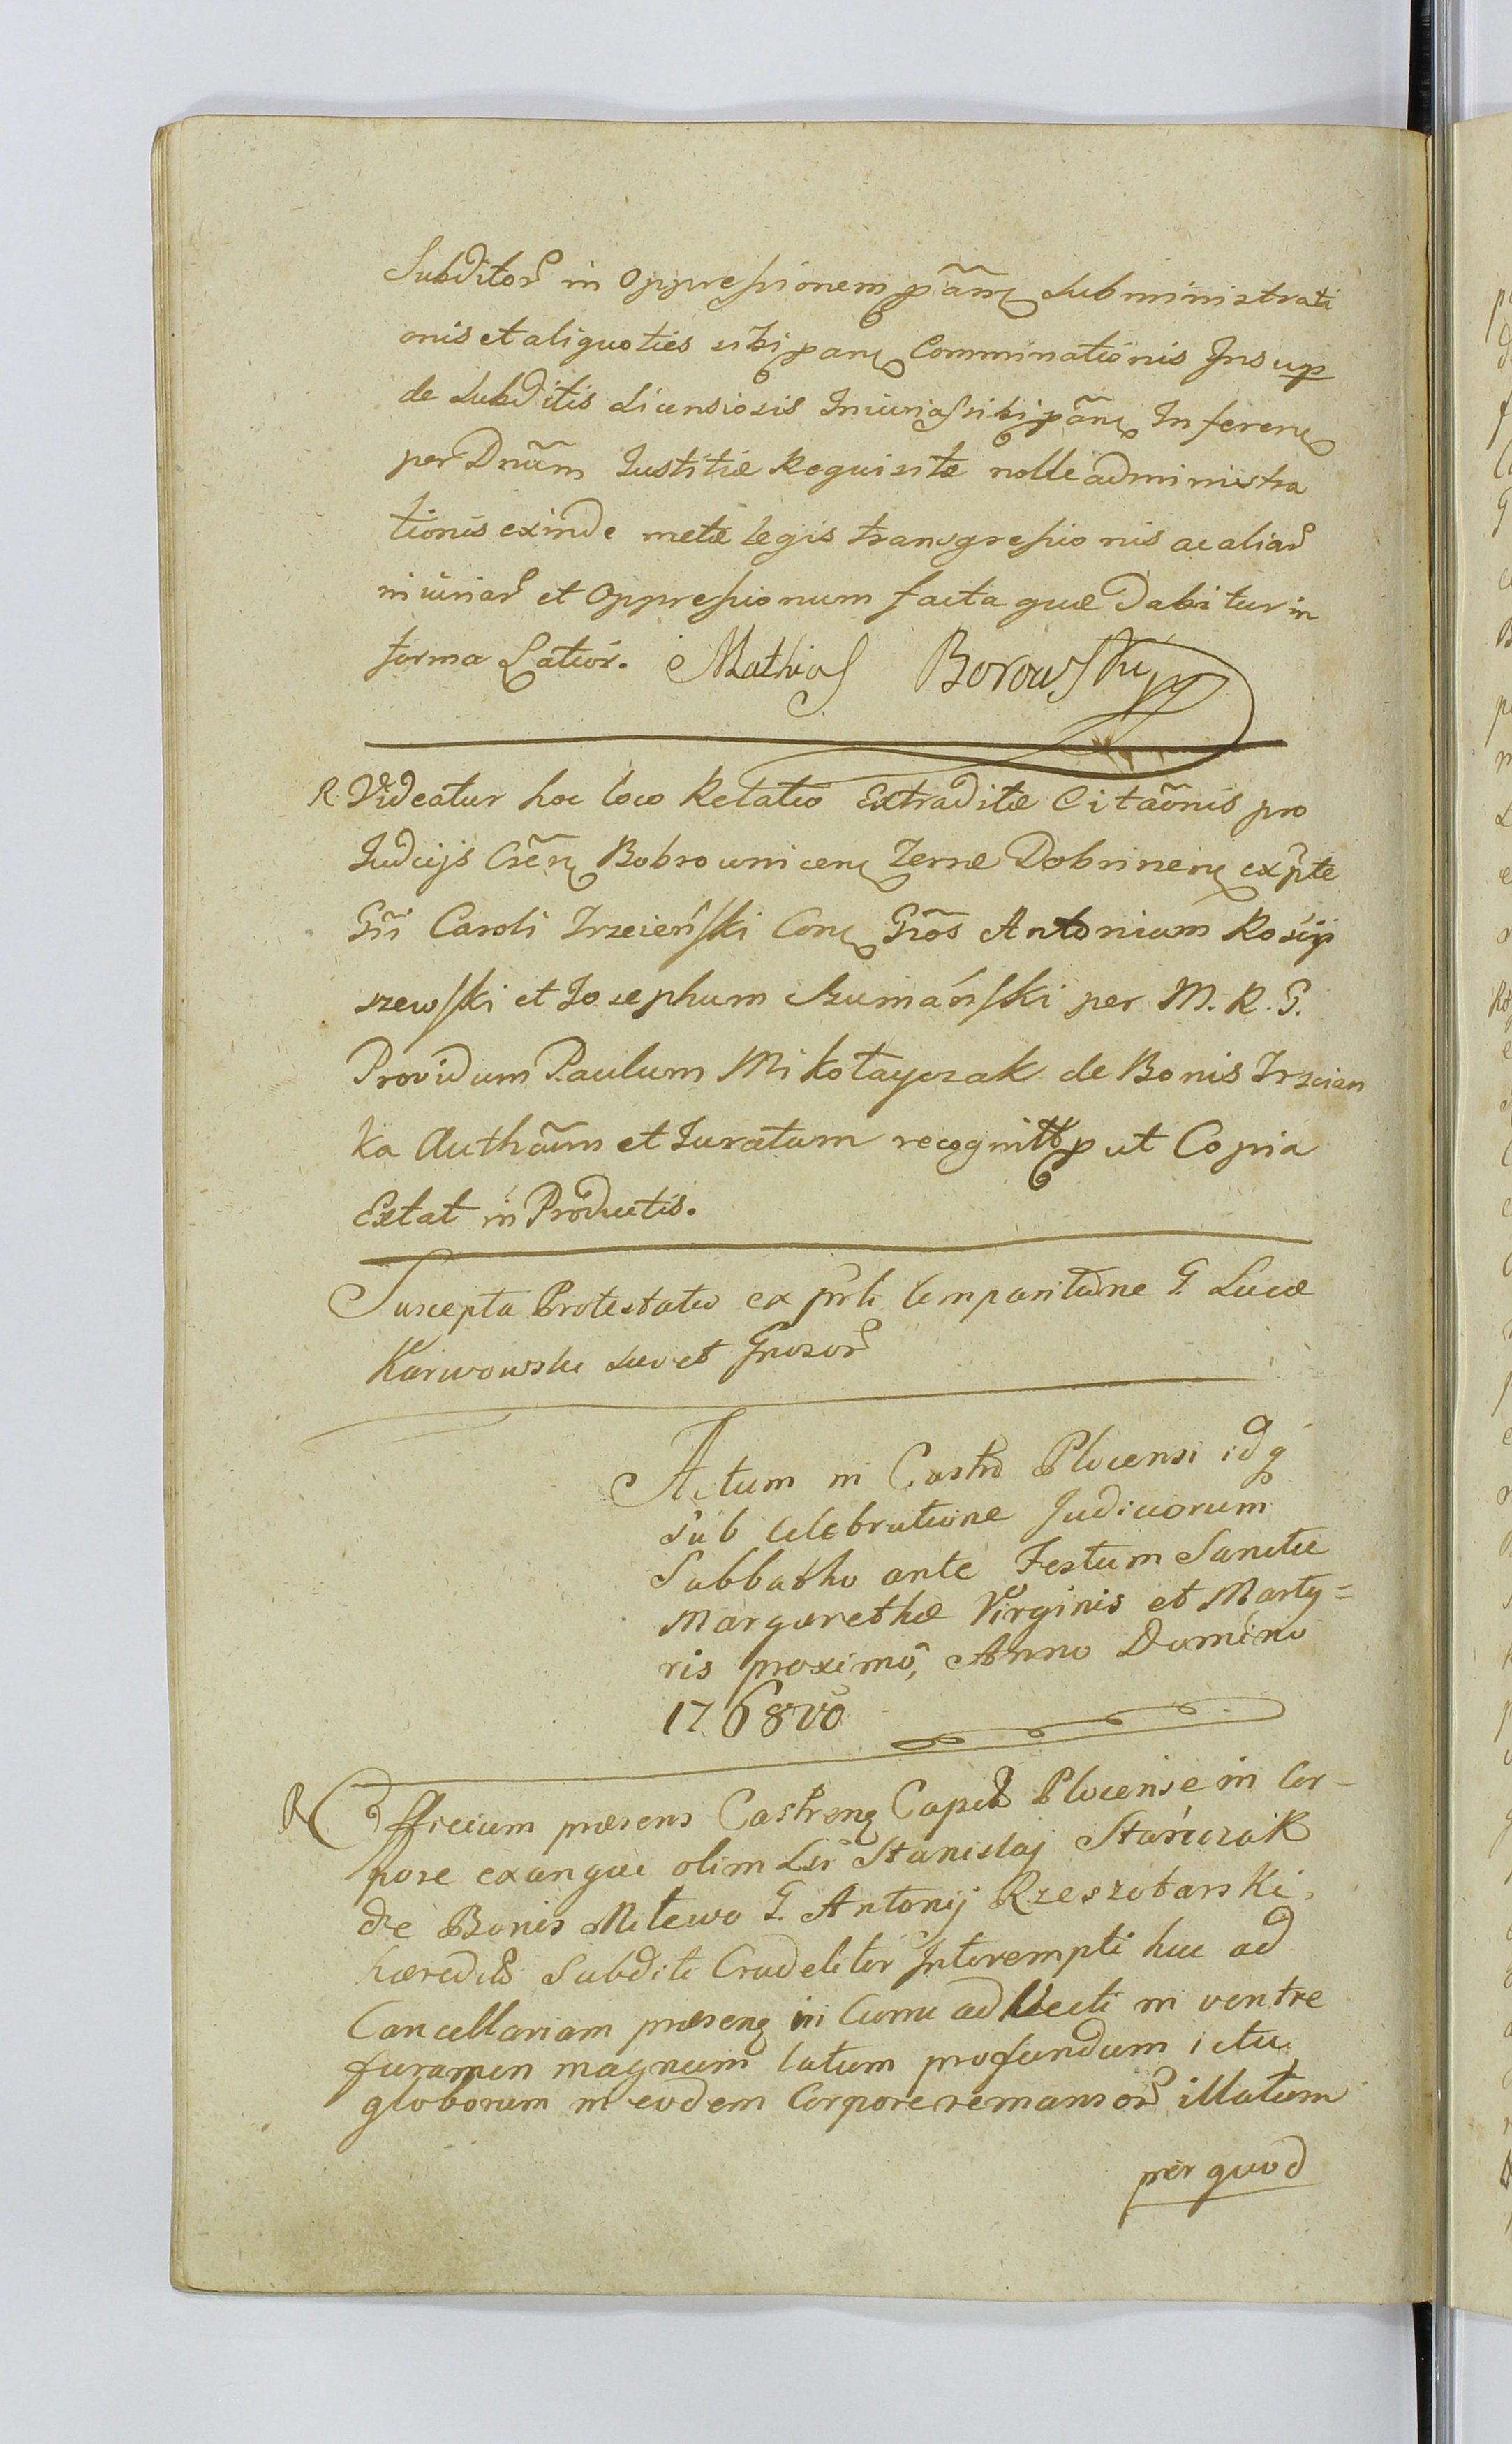 Subditor in Oppressionem pāns subministrati
onis et aliquoties sibi pans Comminationis Insup
de subditis Licensiosis Iniurias sibi pāns Inferens
per Dnūm Iustitiæ Requisitæ nolle administra
tionis exinde metæ legis transgressionis ac aliar
iniuriar et Oppressionum facta quæ Dabitur in
forma Latiōr. Mathias Borowski
R Videatur hoc loco Relatio Extraditæ Citaōnis pro
Iudicijs Csēn Bobrownicens Terræ Dobrinens ex pte
Gñi Caroli Trzcieński Cons Gñōs Antonium Rości
szewski et Josephum Rumáński per M. R. G.
Providum Paulum Mikołayczak de Bonis Trzcian
ka Authāum et Iuratum recognitt p ut Copia
Extat in Productis.
Suscepta Protestatio ex prti Comparitione G. Lucæ
Karwowski suo et Gnosor
Actum in Castro Plocensi idq
sub celebratione Judiciorum
Sabbatho ante Festum Sanctæ
Margarethæ Virginis et Marty=
ris proximo, Anno Domino
1768vo
R Officium præsens Castrens Capit Plocense in Cor-
pore exangue olim Lsi Stanislaj Stańczak
de Bonis Milewo G. Antonij Rzeszotarski
hæredit Subditi Crudeliter Interempti huc ad
Cancellariam præsens in Curru advecti in ventre
foramen magnum latum profundum ictu
globorum in eodem Corpore remansor illatum
per quod